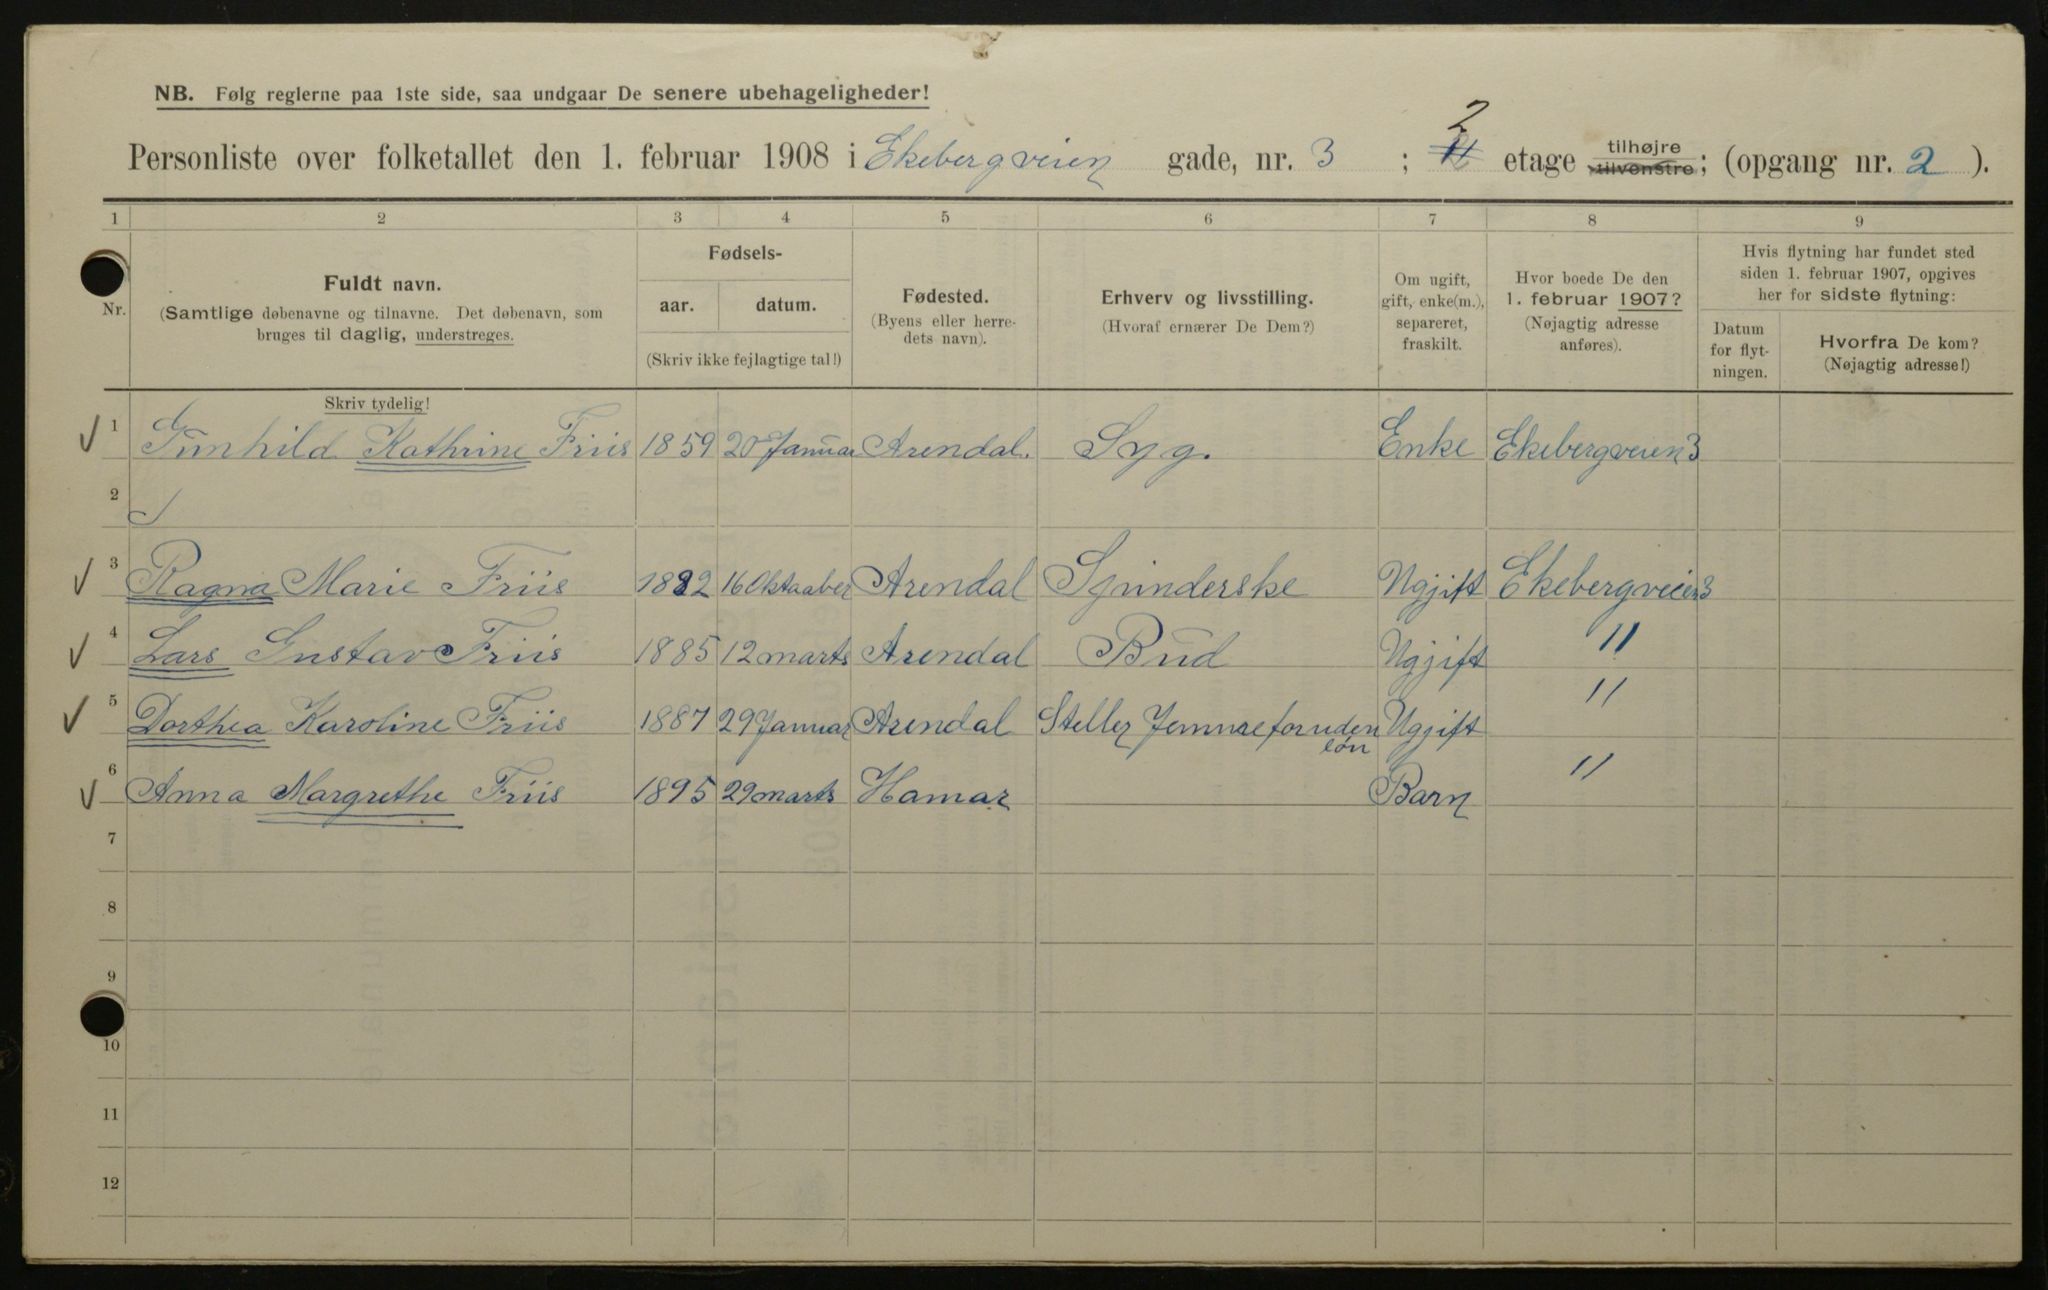 NB. Følg reglerne paa 1ste side, saa undgaar De senere ubehageligheder!
Personliste over folketallet den 1. februar 1908 i Ekebergveien gade, nr. 3 ; 2 etage tilhøjre tilvenstre; (opgang nr. 2 ).
1 2 3 4 5 6 7 8 9
Nr.
Fuldt navn.
(Samtlige døbenavne og tilnavne. Det døbenavn, som
bruges til daglig, understreges.
Skriv tydelig!
Fødsels-
aar. datum.
(Skriv ikke fejlagtige tal!)
Fødested.
(Byens eller herre-
dets navn).
Erhverv og livsstilling.
(Hvoraf ernærer De Dem?)
Om ugift,
gift, enke(m.),
separeret,
fraskilt.
Hvor boede De den
1. februar 1907?
(Nøjagtig adresse
anføres).
Hvis flytning har fundet sted
siden 1. februar 1907, opgives
her for sidste flytning:
Datum
for flyt-
ningen.
Hvorfra De kom?
(Nøjagtig adresse!)
1 Gunhild Kathrine Friis 1859 20 Januar Arendal. Syg. Enke Ekebergveien 3
2
3 Ragna Marie Friis 1882 16 Oktaaber Arendal Spinderske Ugjift Ekebergveien 3
4 Lars Gustav Friis 1885 12 marts Arendal Bud Ugjift "
5 Dorthea Karoline Friis 1887 29 Januar Arendal Steller Jemme for uden løn Ugjift "
6 Anna Margrethe Friis 1895 29 marts Hamar Barn "
7
8
9
10
11
12